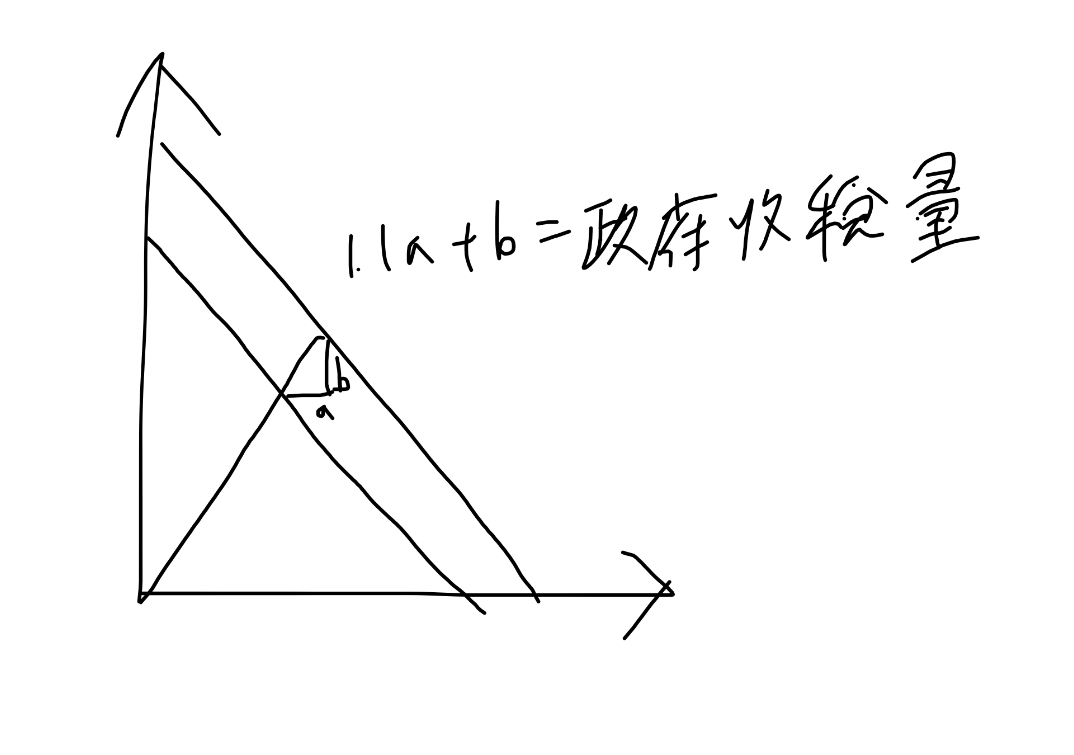 1.1a+b=政府收税量
b
a